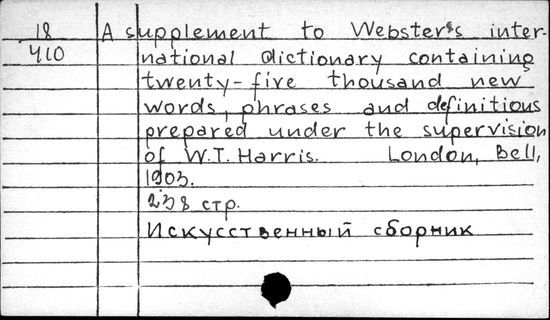 18 A supplement to Webster's inter-
410 national dictionary containing
twenty-five thousand new
words, phrases and definitions
prepared under the supervision
of W.T. Harris. London, Bell,
1903.
238 стр.
Искусственный сборник